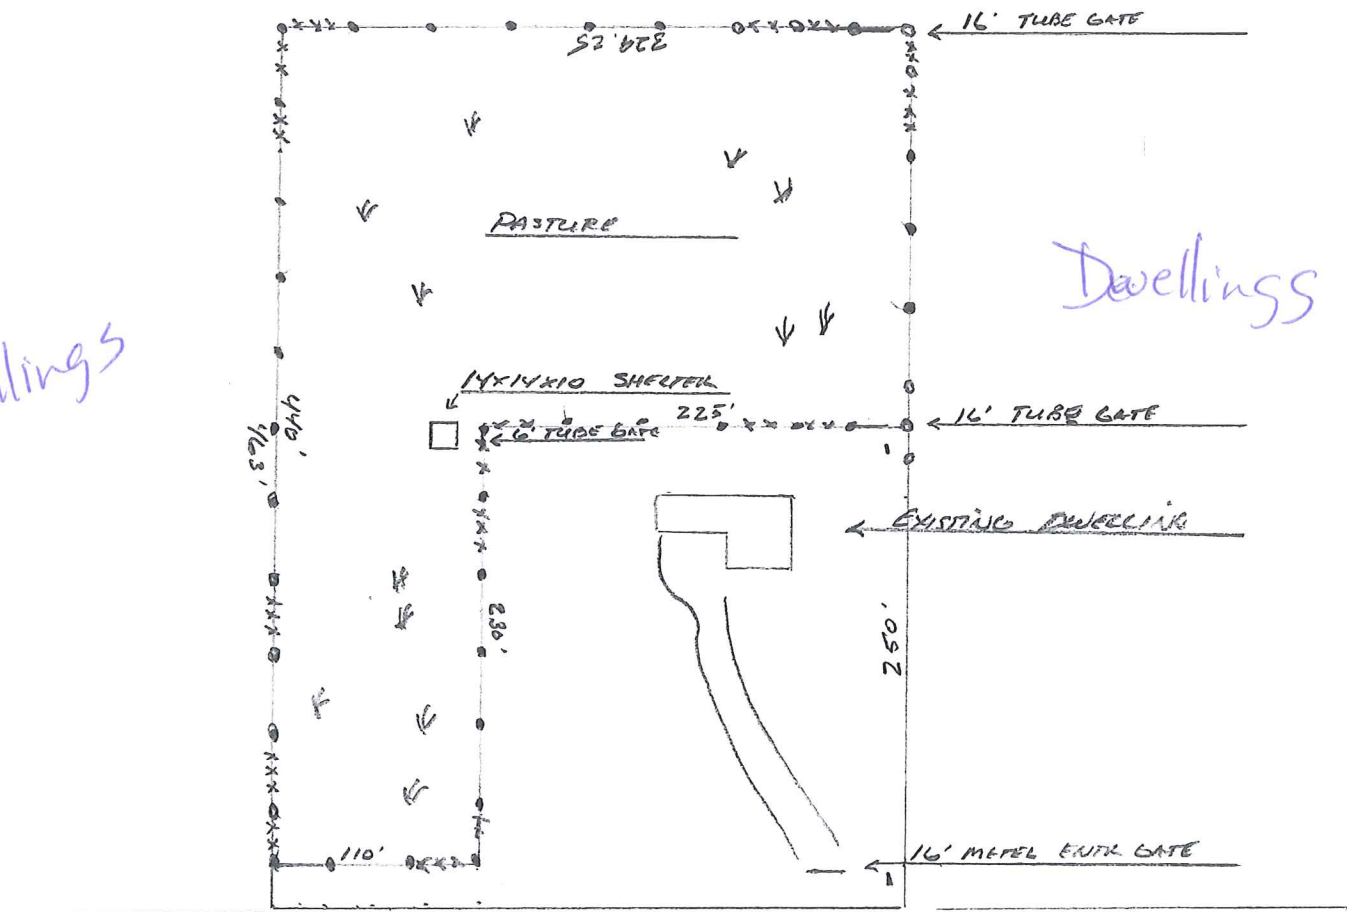 16' TUBE GATE
329.25
PASTURE
Dwellings
llings
14X14X10 SHELTER
225'
16' TUBE GATE
6' TUBE GATE
440'
463'
EXISTING DWELLING
230'
250'
110'
16' METEL ENTR GATE